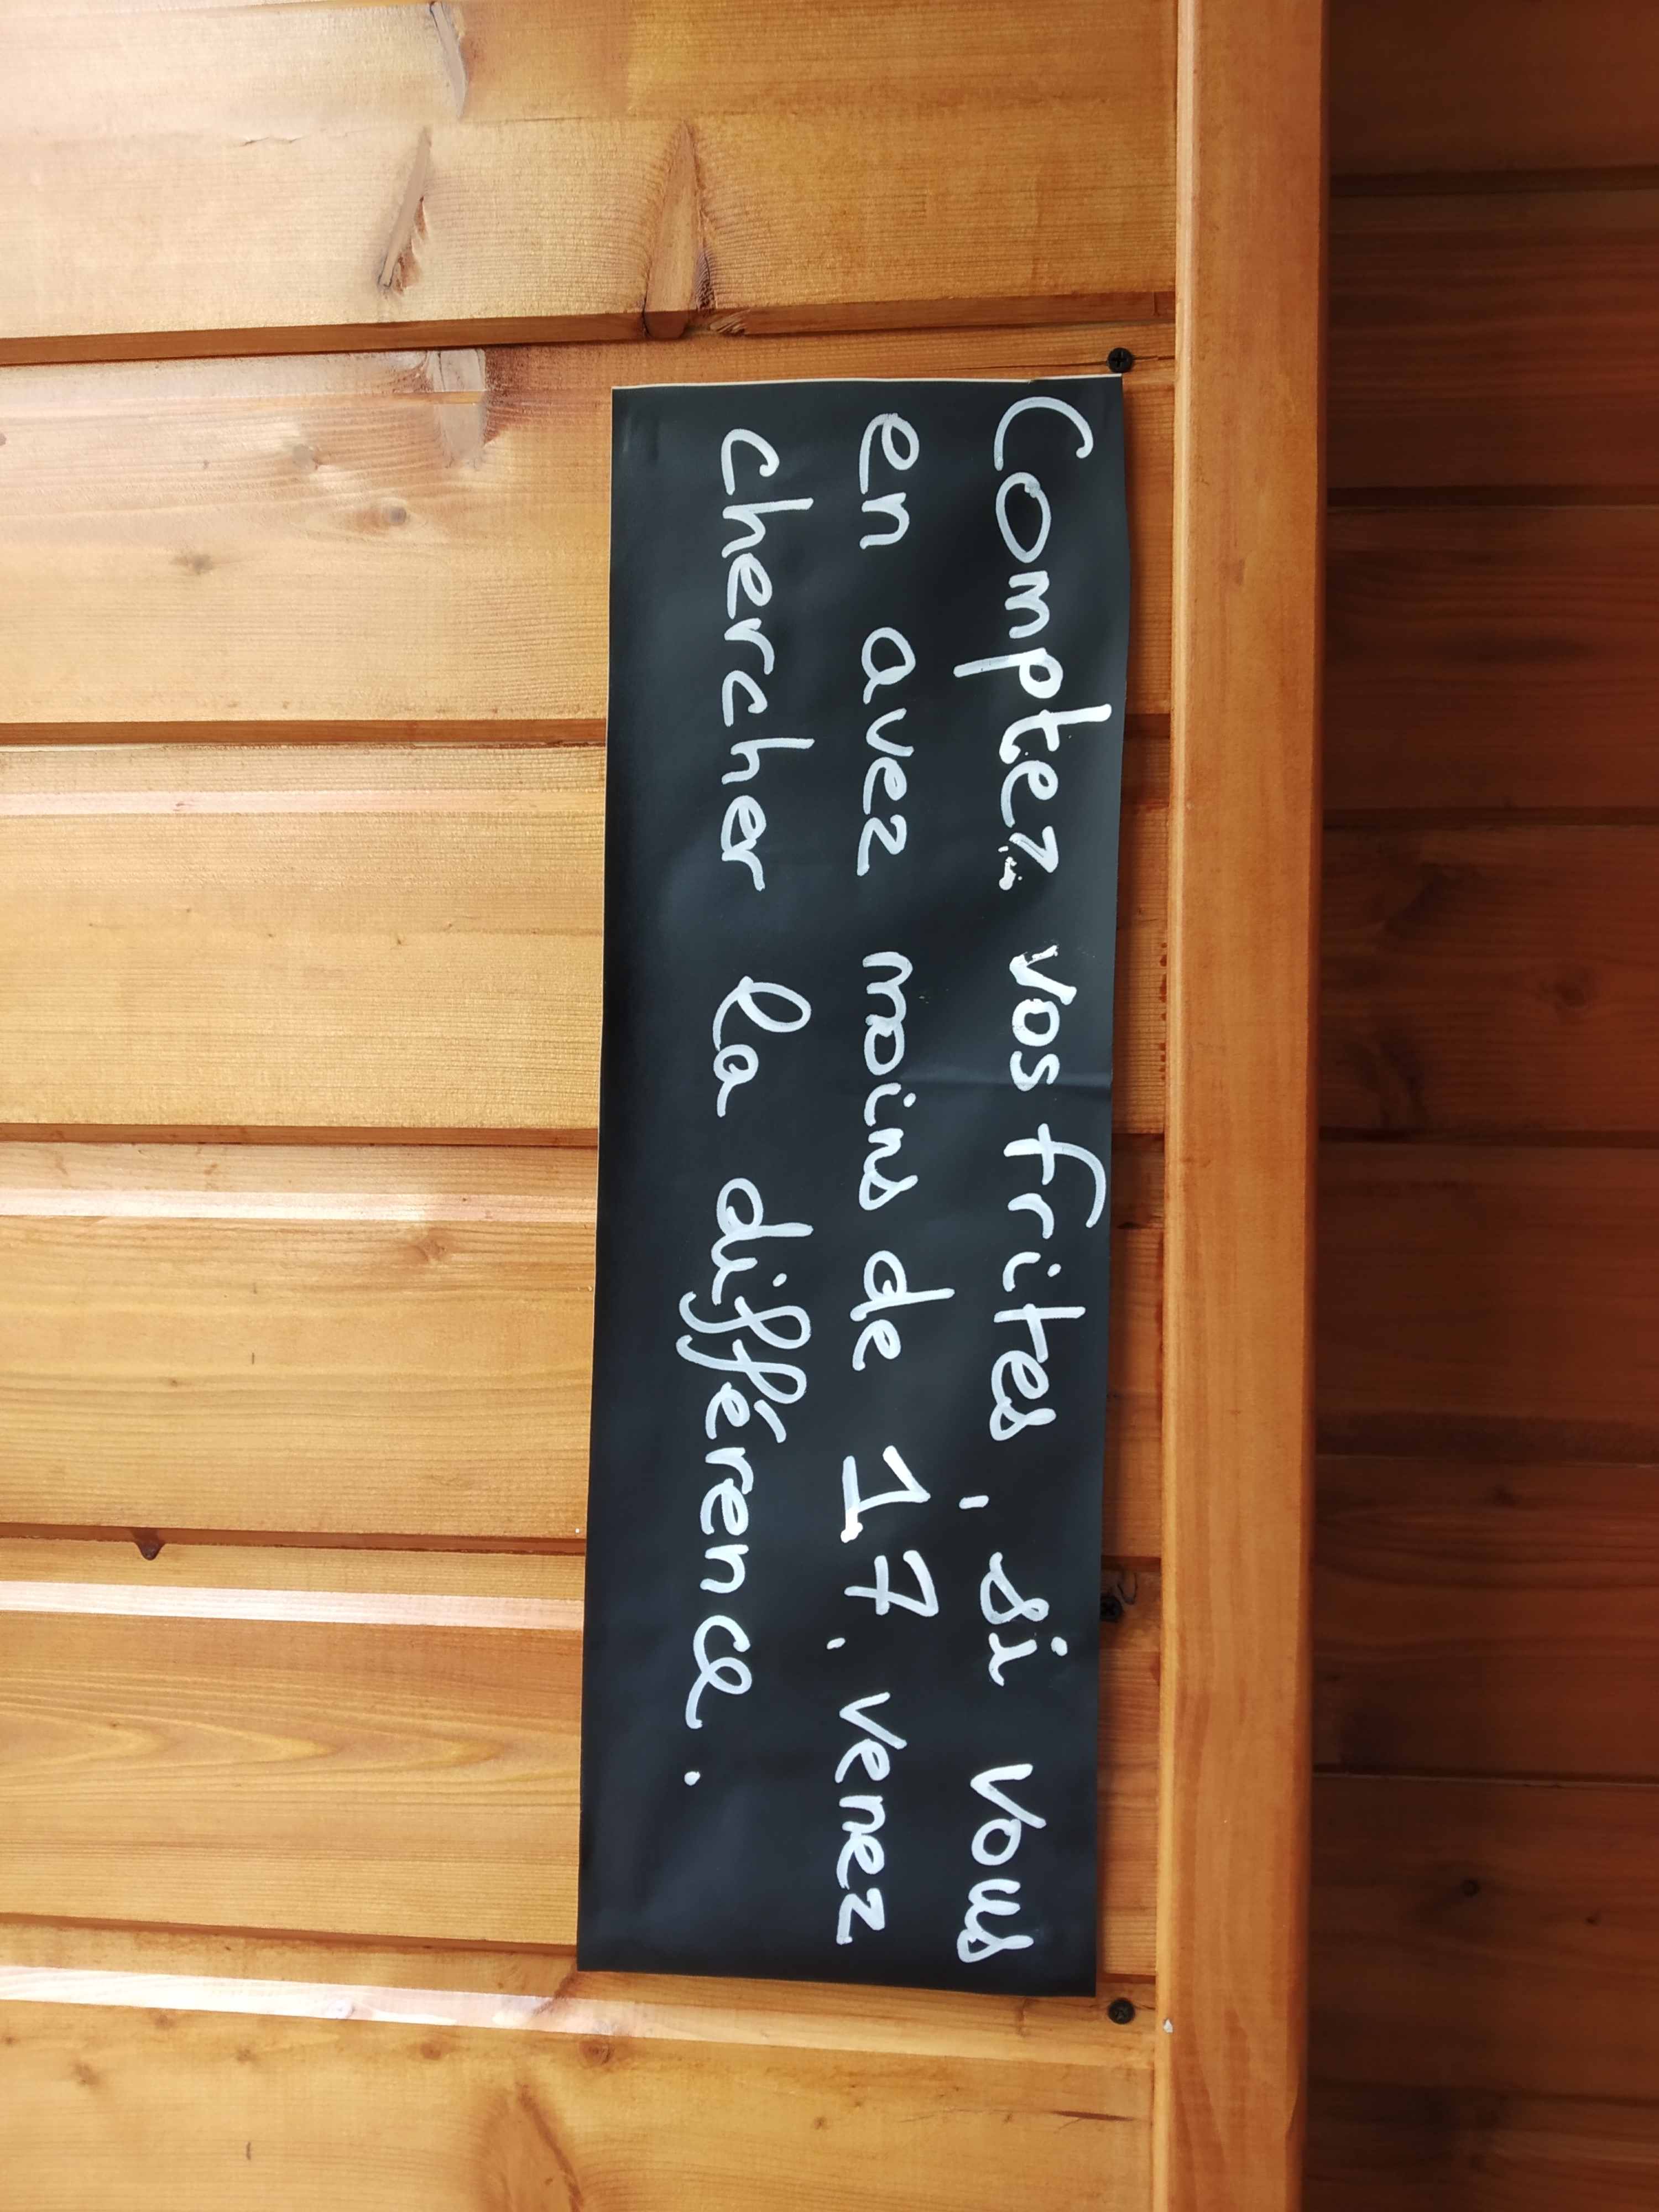 Comptez vos frites, si vous
en avez moins de 17, venez
chercher la différence.